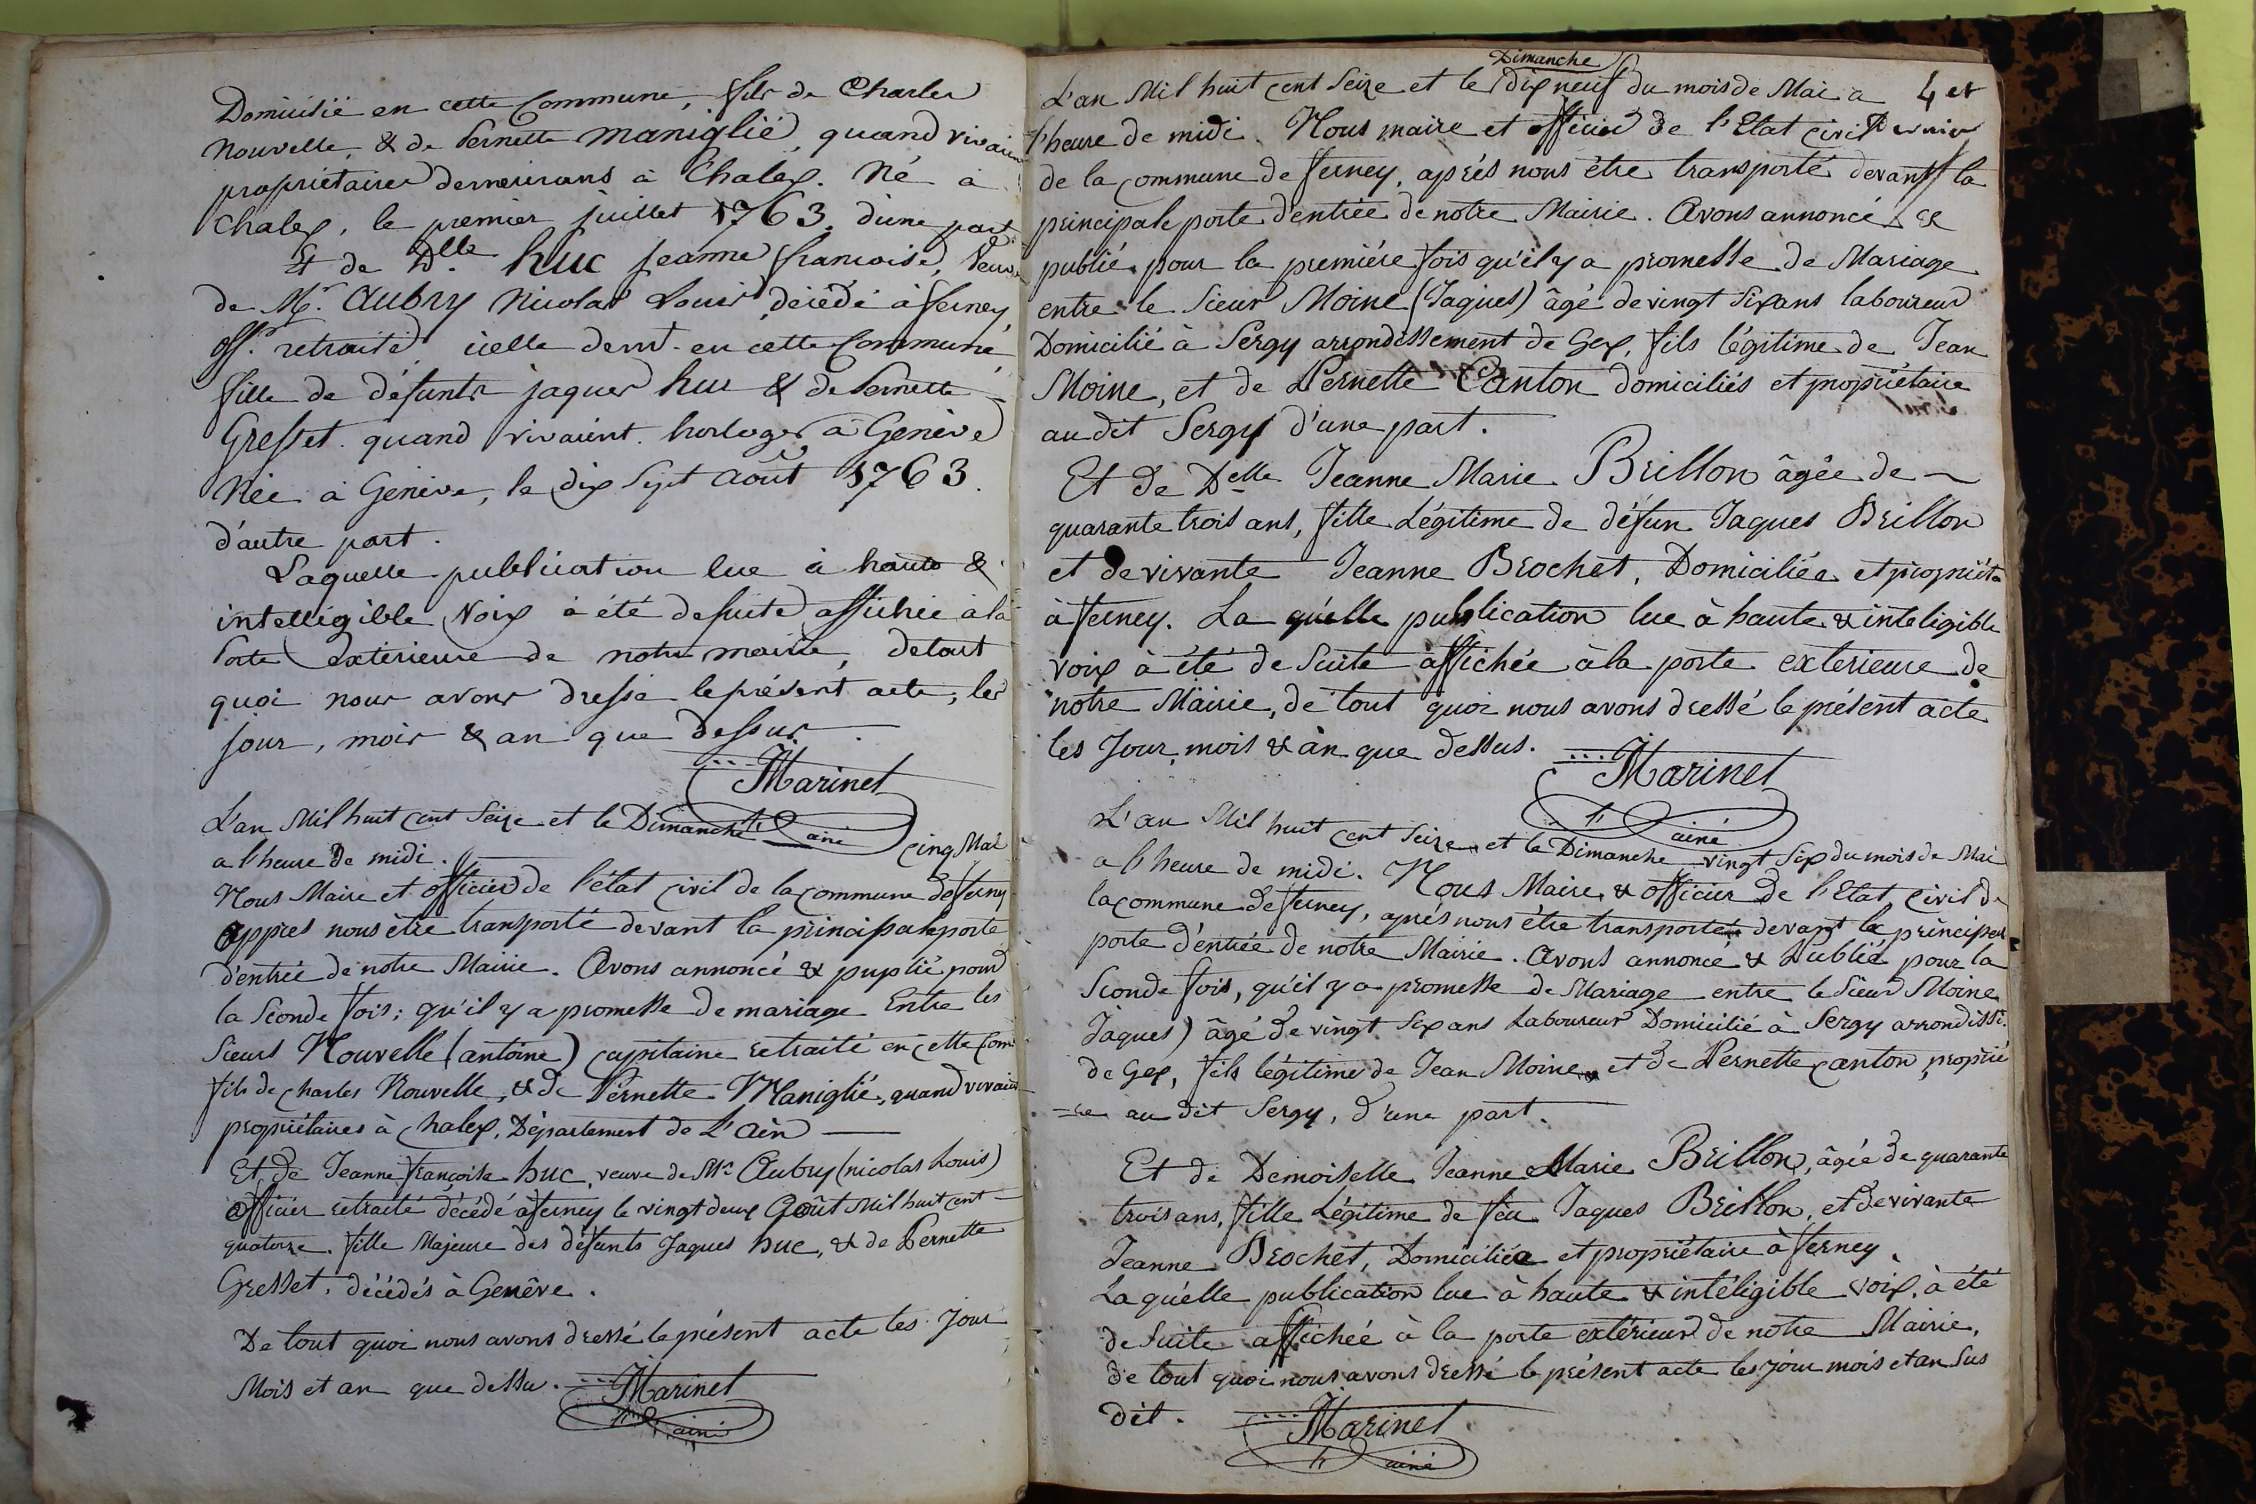 Domicilié en cette Commune, fils de Charles
Nouvelle, & de Pernette Maniglié, quand vivaien
propriétaires demeurans à Chalex. Né à
Chalex, le premier juillet 1763. d'une part
Et de Dlle huc jeanne francoise, veuve
de Mr. Aubry Nicolas Louis, décédé à ferney,
off.r retraité, icelle demt. en cette Commune,
fille de défunts jaques huc & de Pernette
Gresset. quand vivaient. horloger à Genève
Née à Genève, le dix Sept Août 1763.
d'autre part.
Laquelle publication lue à haute &
intelligible voix à été desuite affichée à la
Porte extérieure de notre mairie, detout
quoi nous avons dressé leprésent acte, les
jour, mois & an que dessus.
Marinet
ainé
L'an Mil huit cent Seize et le Dimanche cinq Mai
a l'heure de midi.
Nous Maire et officier de l'état civil de la commune de ferney
appres nous être transporté devant la principale porte
d'entrée de notre Mairie. Avons annoncé & puplié pour
la Séconde fois; qu'il y a promesse de mariage Entre les
Sieurs Nouvelle (antoine) capitaine retraité en cette Com
fils de charles Nouvelle, & de Pernette Maniglié, quand vivaien
propriétaires à chalex, Département de L'ain
Et de Jeanne françoise huc, veuve de Mr Aubry (nicolas Louis)
Officier retraité décédé à ferney le vingt deux Août Mil huit cent
quatorze. fille Majeure des défunts Jaques huc, & de Pernette
Gresset, décédés à Genêve.
De tout quoi nous avons dressé le présent acte les Jour
Mois et an que dessu.
Marinet
ainé
Dimanche
L'an Mil huit cent Seize et le dix neuf du mois de Mai a
4 et
l'heure de midi. Nous maire et officier de l'Etat civil
Dernier
de la commune de ferney, aprés nous être transporté devant la
principale porte d'entrée de notre Mairie. Avons annoncé &
publié pour la premiére fois qu'il y a promesse de Mariage
entre le Sieur Moine (Jaques) âgé de vingt Six ans laboureur
Domicilié à Sergy arrondissement de Gex, fils légitime de Jean
Moine, et de Pernette Canton domiciliés et propriétaire
au dit Sergy d'une part.
Et de Delle Jeanne Marie Brillon âgée de
quarante trois ans, fille Légitime de défun Jaques Brillon
et de vivante Jeanne Brochet, Domiciliée et propriéta
à ferney. La qu'elle publication lue à haute & inteligible
voix à été de Suite affichée à la porte exterieure de
notre Mairie, de tout quoi nous avons dressé le présent acte
les Jour, mois & an que dessus.
Marinet
ainé
L'an Mil huit cent Seize et le Dimanche vingt Six du mois de Mai
a l'heure de midi. Nous Maire & officier de l'Etat civil de
la commune de ferney, aprés nous être transporté devant la principal
porte d'entrée de notre Mairie. Avons annoncé & Publié pour la
Sconde fois, qu'il y a promesse de Mariage entre le Sieur Moine
Jaques) âgé de vingt Six ans Laboureur Domicilié à Sergy arrondisst.
de Gex, fils légitime de Jean Moine et de Pernette canton, proprié
=re au dit Sergy, d'une part.
Et de Demoiselle Jeanne Marie Brillon, âgée de quarante
trois ans, fille Légitime de feu Jaques Brillon, et de vivante
Jeanne Brochet, Domiciliée et propriétaire à ferney.
La qu'elle publication lue à haute & intéligible voix, à été
de Suite affichée à la porte extérieur de notre Mairie,
de tout quoi nous avons dressé le présent acte les jour mois et an Sus
dit.
Marinet
ainé